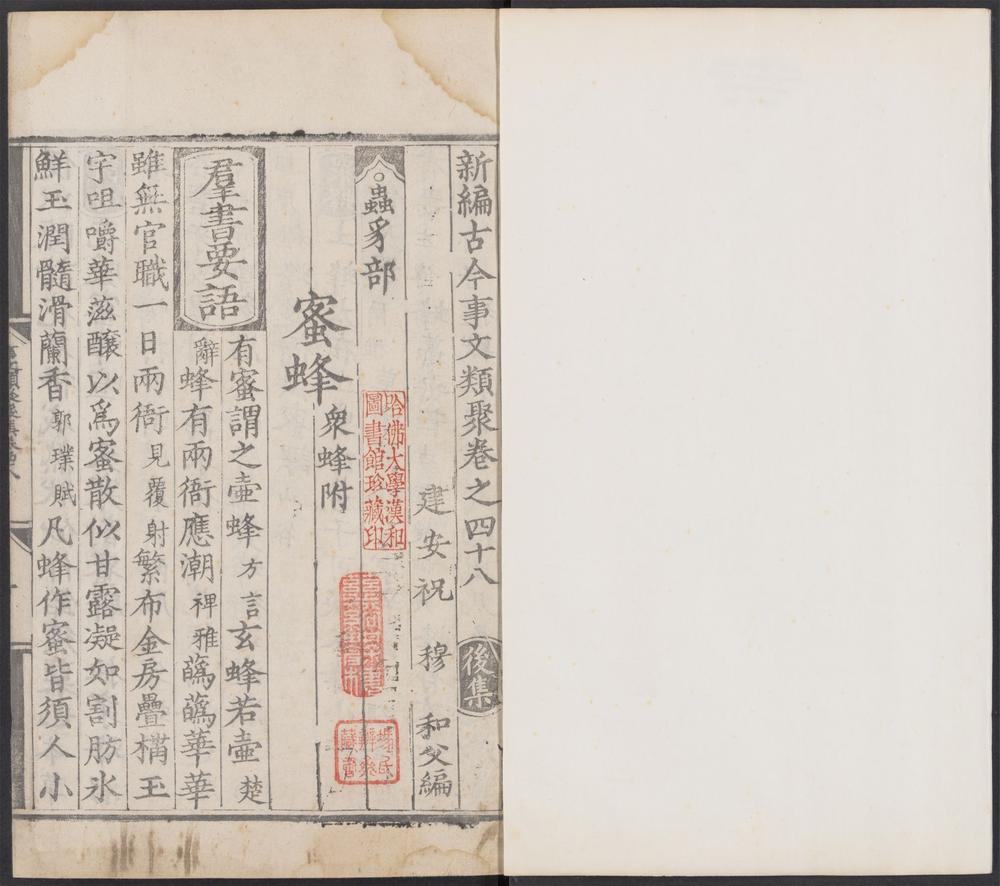 新編古今事文類聚卷之四十八 後集
建安祝 穆 和父編
蟲豸部
蜜蜂 衆蜂附
羣書要語 有蜜謂之壷蜂 方言 玄蜂若壷 楚
辭 蜂有兩衙應潮 裨雅 蘤蘤華華
雖無官職一日兩衙 見覆射 繁布金房疊構玉
宇咀嚼華滋釀以爲蜜散似甘露凝如割肪氷
鮮玉潤髓滑蘭香 郭璞賦 凡蜂作蜜皆須人小
哈佛大學漢和
圖書館珍藏印